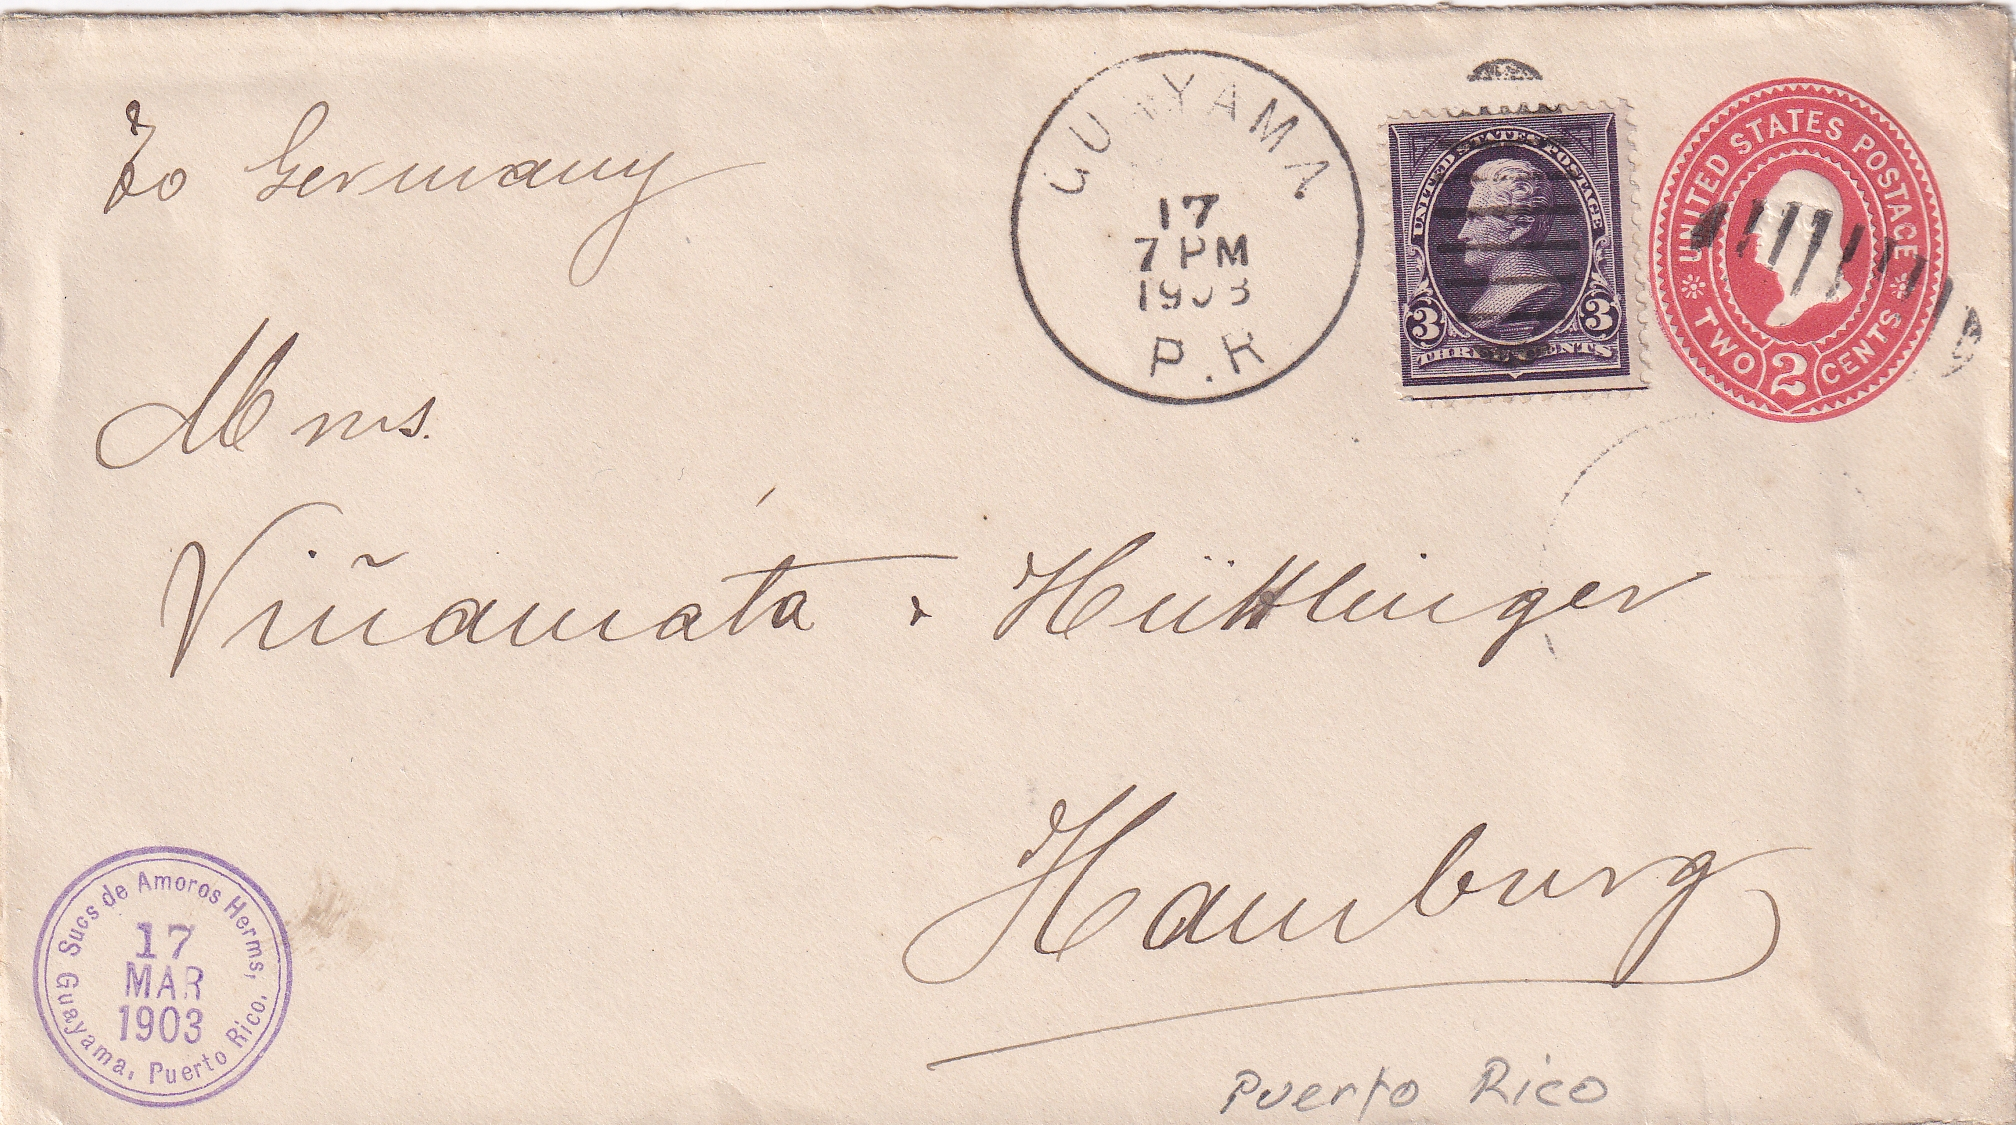 To Germany
GUAYAMA
17
7 PM
1903
P.R
UNITED STATES POSTAGE
3 3
THREE CENTS
UNITED STATES POSTAGE
TWO 2 CENTS
Mms.
Viñamata & Hüttlinger
Hamburg
Sucs de Amoros Herms,
17
MAR
1903
Guayama, Puerto Rico.
Puerto Rico